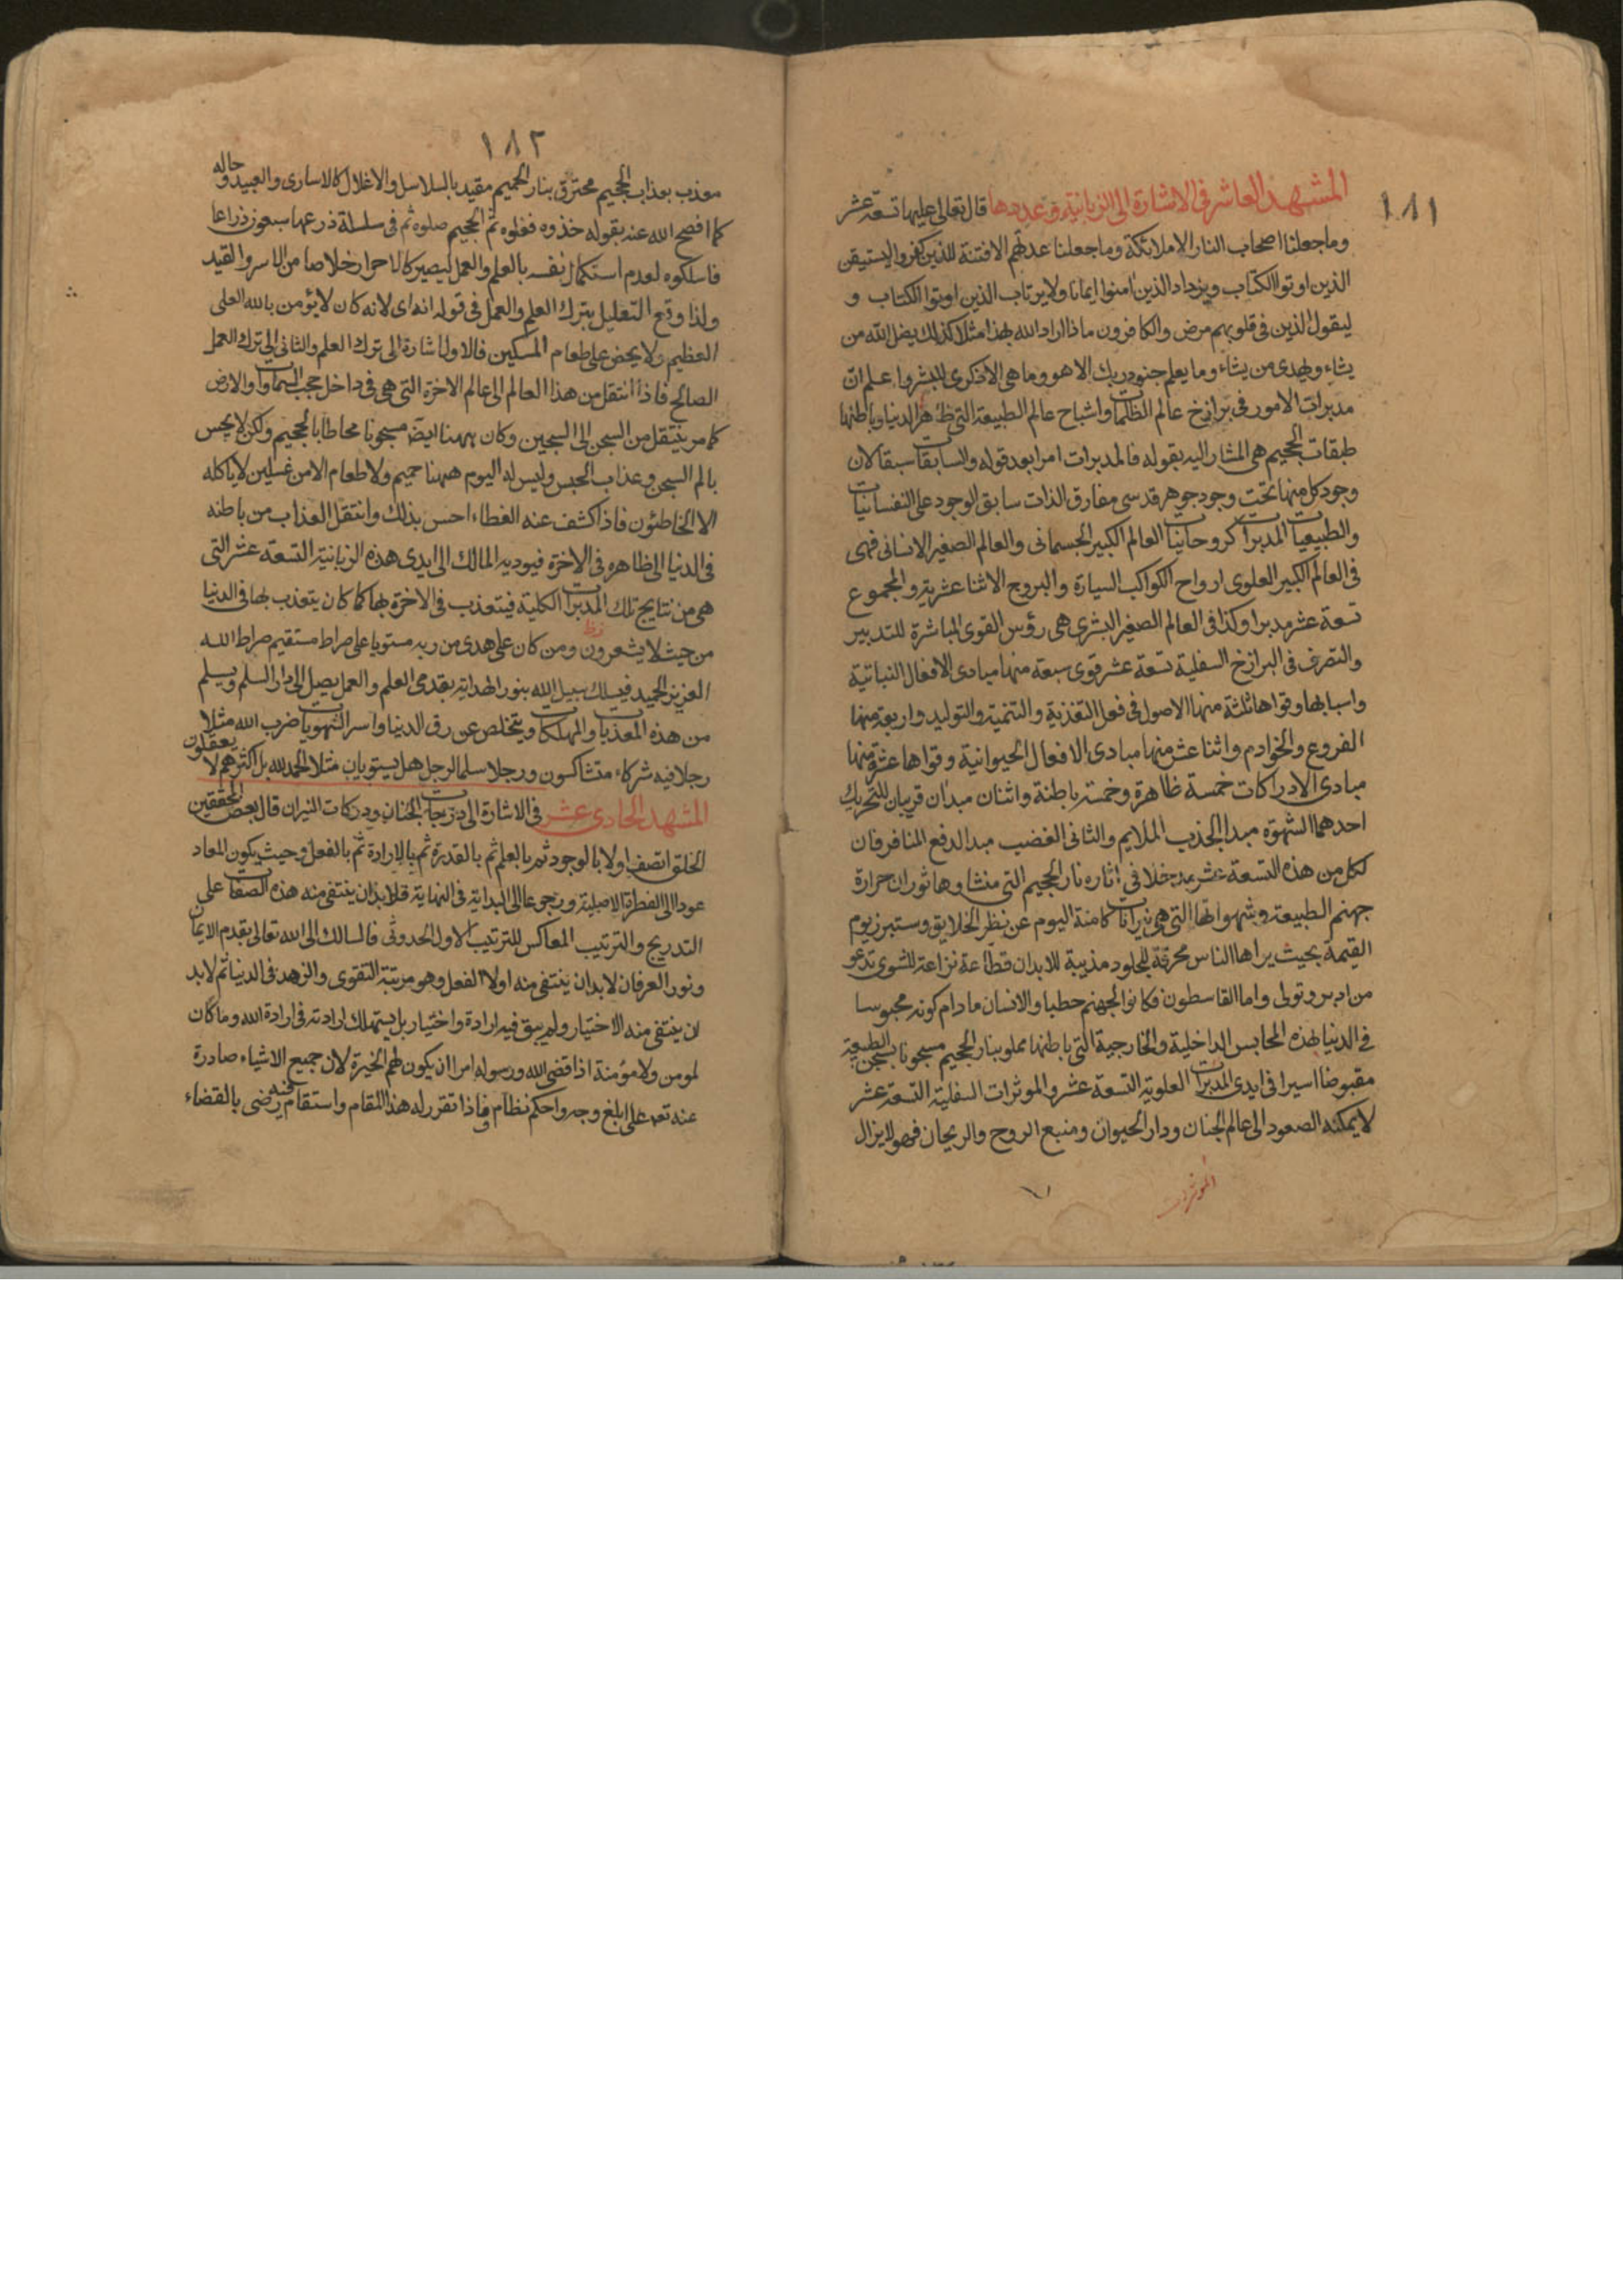 ١٨١
المشهد العاشر فى الاشارة الى الزبانية وعددها قال تعالى عليها تسعة عشر
وما جعلنا اصحاب النار الا ملائكة وما جعلنا عدتهم الا فتنة للذين كفروا ليستيقن
الذين اوتوا الكتاب ويزداد الذين امنوا ايمانا ولا يرتاب الذين اوتوا الكتاب و
ليقول الذين فى قلوبهم مرض والكافرون ماذا اراد الله بهذا مثلا كذلك يضل الله من
يشاء ويهدى من يشاء وما يعلم جنود ربك الا هو وما هى الا ذكرى للبشر واعلم ان
مدبرات الامور فى برازخ عالم الظلمات واشباح عالم الطبيعة التى ظاهرها الدنيا وباطنها
طبقات الجحيم هى المشار اليه بقوله فالمدبرات امرا بعد قوله والسابقات سبقا لان
وجود كل منها تحت وجود جوهر قدسى مفارق الذات سابق الوجود على النفسانيات
والطبيعيات المدبرات كروحانيات العالم الكبير الجسمانى والعالم الصغير الانسانى فهى
فى العالم الكبير العلوى ارواح الكواكب السيارة والبروج الاثنا عشرية والمجموع
تسعة عشر مدبرا وكذا فى العالم الصغير البشرى هى رؤس القوى المباشرة للتدبير
والتصرف فى البرازخ السفلية تسعة عشر قوى سبعة منها مبادى الافعال النباتية
واسبابها وقواها ثلثة منها الاصول فى فعل التغذية والتنمية والتوليد واربعة منها
الفروع والخوادم واثنا عشر منها مبادى الافعال الحيوانية وقواها عشرة منها
مبادى الادراكات خمسة ظاهرة وخمسة باطنة واثنان مبدان قريبان للتحريك
احدهما الشهوة مبدا الجذب الملايم والثانى الغضب مبدا الدفع المنافر فان
لكل من هذه التسعة عشر مدخلا فى اثاره نار الجحيم التى منشاوها ثوران حرارة
جهنم الطبيعة وشهواتها التى هى نيرانات كامنة اليوم عن نظر الخلايق وستبرز يوم
القيمة بحيث يراها الناس محرقة للجلود مذيبة للابدان قطاعة نزاعة للشوى تدعو
من ادبر وتولى واما القاسطون فكانوا لجهنم حطبا والانسان ما دام كونه محبوسا
فى الدنيا بهذه المحابس الداخلية والخارجية التى باطنها مملو بنار الجحيم مسجونا بسجن الطبيعة
مقبوضا اسيرا فى ايدى المدبرات العلوية التسعة عشر والموثرات السفلية التسعة عشر
لا يمكنه الصعود الى عالم الجنان ودار الحيوان ومنبع الروح والريحان فهو لا يزال
الموثرات
١٨٢
معذب بعذاب الجحيم محترق بنار الحميم مقيد بالسلاسل والاغلال كالاسارى والعبيد وحاله
كما افصح الله عنه بقوله خذوه فغلوه ثم الجحيم صلوه ثم فى سلسلة ذرعها سبعون ذراعا
فاسلكوه لعدم استكمال نفسه بالعلم والعمل ليصير كالاحرار خلاصا من الاسر والقيد
ولذا وقع التعليل بترك العلم والعمل فى قوله انه اى لانه كان لا يؤمن بالله العلى
العظيم ولا يحض على طعام المسكين فالاول اشارة الى ترك العلم والثانى الى ترك العمل
الصالح فاذا انتقل من هذا العالم الى عالم الاخرة التى هى فى داخل حجب السماوات والارض
كما مر ينتقل من السجن الى السجين وكان ههنا ايضا مسجونا محاطا بالجحيم ولكن لا يحس
بالم السجن وعذاب الحبس وليس له اليوم ههنا حميم ولا طعام الا من غسلين لا ياكله
الا الخاطئون فاذا كشف عنه الغطاء احس بذلك وانتقل العذاب من باطنه
فى الدنيا الى ظاهره فى الاخرة فيوديه المالك الى ايدى هذه الزبانية التسعة عشر التى
هى من نتايج تلك المدبرات الكلية فيتعذب فى الاخرة بها كما كان يتعذب بها فى الدنيا
من حيث لا يشعرون ومن كان على هدى من ربه مستويا على صراط مستقيم صراط الله
العزيز الحميد فيسلك سبيل الله بنور الهداية بقدمى العلم والعمل يصل الى دار السلم ويسلم
من هذه المعذبات والمهلكات ويتخلص عن رق الدنيا واسر الشهويات ضرب الله مثلا
رجلا فيه شركاء متشاكسون ورجلا سلما لرجل هل يستويان مثلا الحمد لله بل اكثرهم لا يعقلون
المشهد الحادى عشر فى الاشارة الى درجات الجنان ودركات النيران قال بعض المحققين
الخلق اتصف اولا بالوجود ثم بالعلم ثم بالقدرة ثم بالارادة ثم بالفعل وحيث يكون المعاد
عودا الى الفطرة الاصلية ورجوعا الى البداية فى النهاية فلا بد ان ينتفى منه هذه الصفات على
التدريج والترتيب المعاكس للترتيب الاول الحدوثى فالسالك الى الله تعالى بقدم الايمان
ونور العرفان لا بد ان ينتفى منه اولا الفعل وهو مرتبة التقوى والزهد فى الدنيا ثم لا بد
ان ينتفى منه الاختيار ولم يبق فيه ارادة واختيار بل يستهلك ارادته فى ارادة الله وما كان
لمومن ولا مؤمنة اذا قضى الله ورسوله امرا ان يكون لهم الخيرة لان جميع الاشياء صادرة
عنه تعه على ابلغ وجه واحكم نظام فاذا تقرر له هذا المقام واستقام فيه رضى بالقضاء